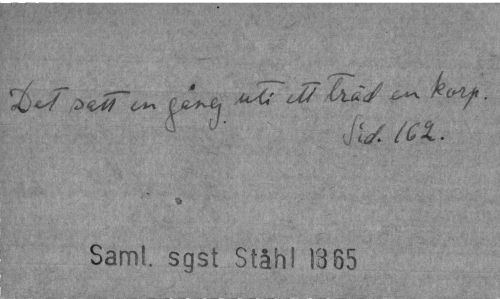 Det satt en gång uti ett träd en korp.
Sid. 162.
Saml. sgst Ståhl 1865